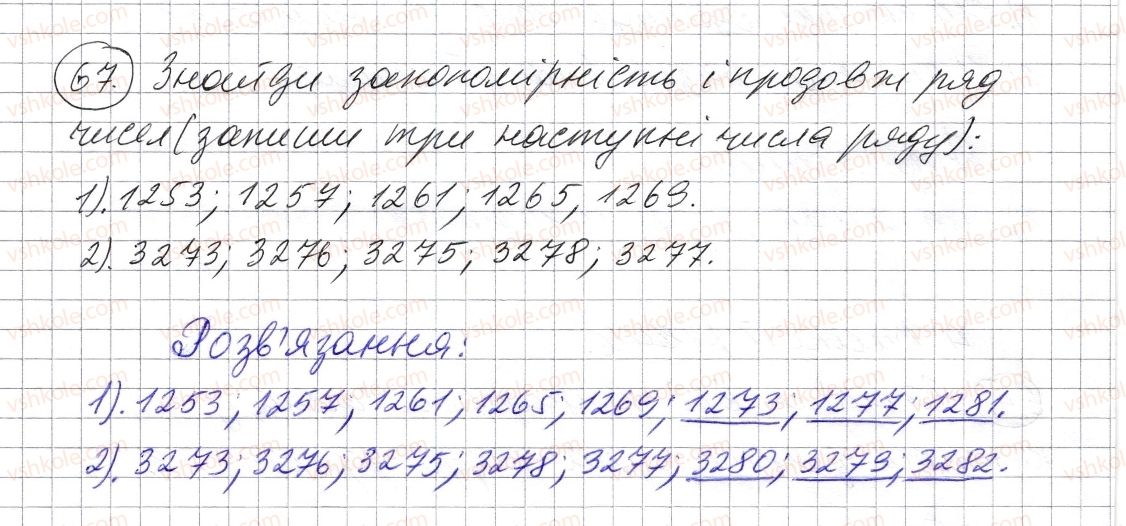 67. Знайди закономірність і продовж ряд
чисел (запиши три наступні числа ряду):
1). 1253; 1257; 1261; 1265, 1269.
2). 3273; 3276; 3275; 3278; 3277.
Розв'язання:
1). 1253; 1257; 1261; 1265; 1269; 1273; 1277; 1281.
2). 3273; 3276; 3275; 3278; 3277; 3280; 3279; 3282.
vshkole.com